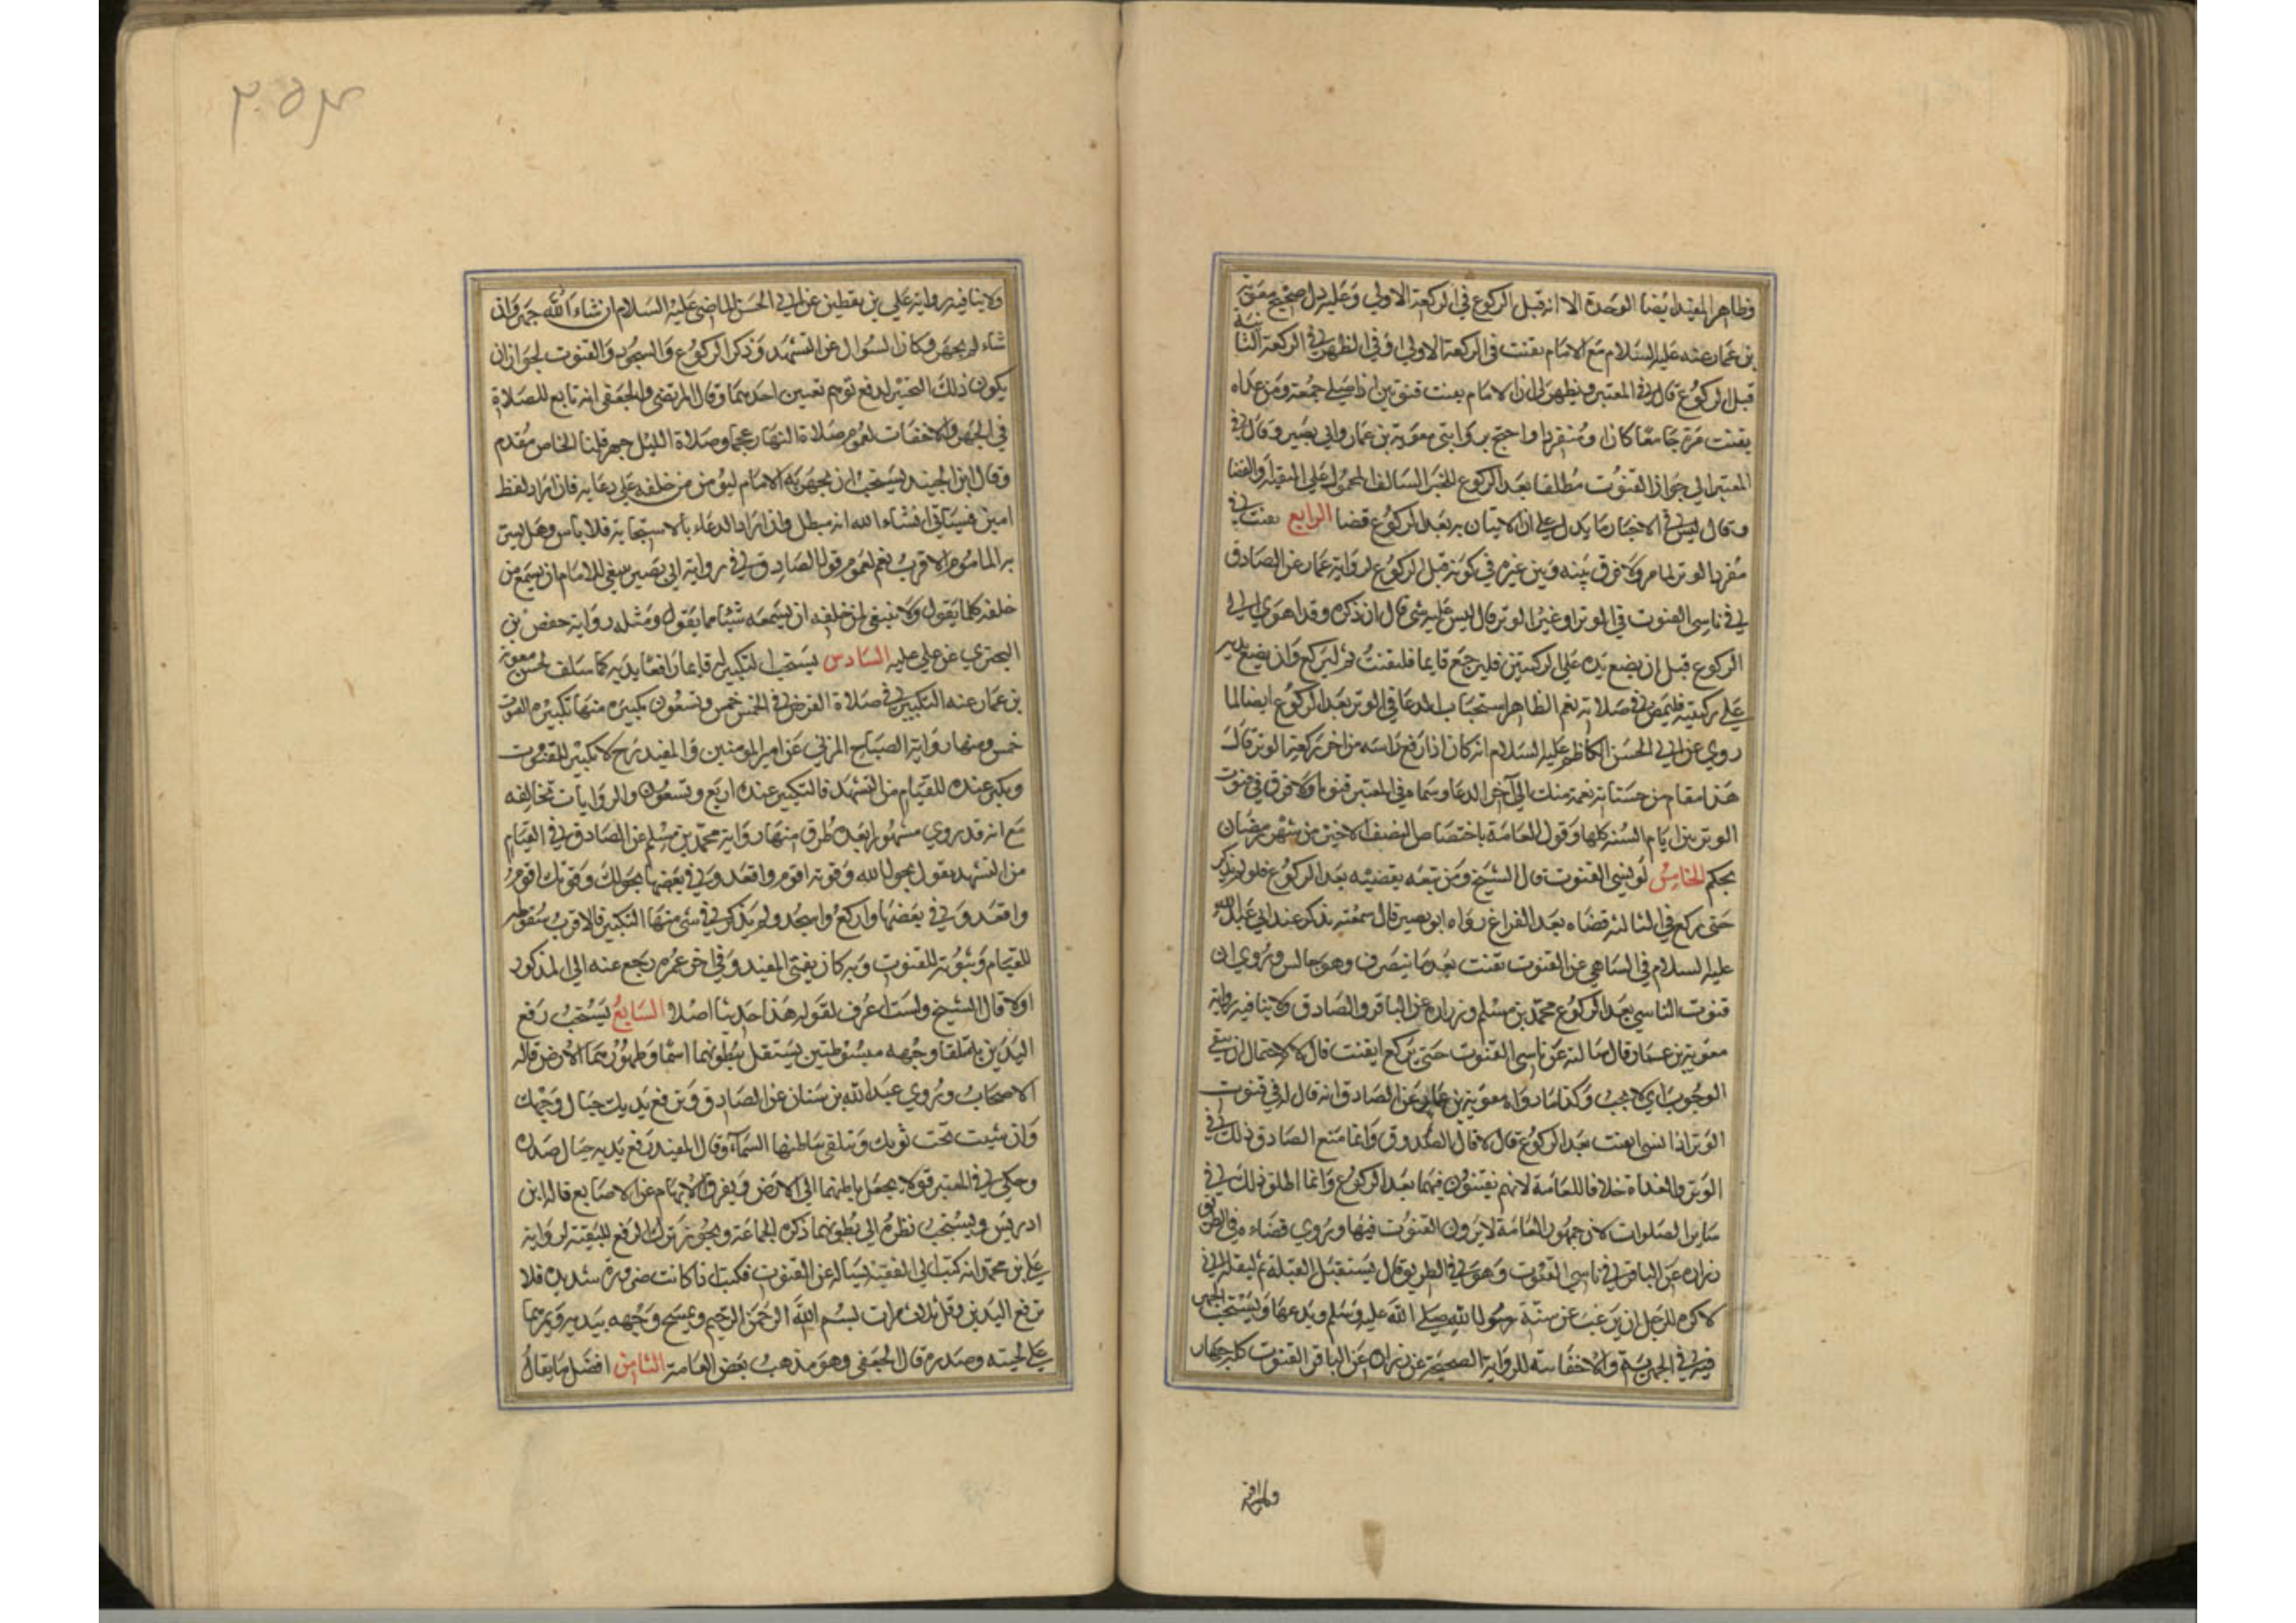 وظاهر المفيد ايضا الوحدة الا انه قبل الركوع في الركعة الاولى وعليه دل صحيح معوية
بن عمار عنه عليه السلام مع الامام يقنت في الركعة الاولى وفي الظهر في الركعة الثانية
قبل الركوع قال في المعتبر ويظهر لي ان الامام يقنت قنوتين اذا صلى جمعة ومن عداه
يقنت مرة جامعا كان او منفردا واحتج بروايتي معوية بن عمار وابي بصير وقال في
المعتبر الى جواز القنوت مطلقا بعد الركوع للخبر السالف المحمول على التقية والقضا
وقال ليس في الاخبار ما يدل على ان الاتيان به بعد الركوع قضا الرابع يقنت في
مفردة الوتر لما مر ولا فرق بينه وبين غيره في كونه قبل الركوع لرواية عمار عن الصادق
في ناسي القنوت في الوتر او غير الوتر قال ليس عليه شي قال ان ذكره وقد اهوى الى
الركوع قبل ان يضع يده على الركبتين فليرجع قايما فليقنت ثم ليركع وان يضع يديه
على ركبتيه فليمض في صلاته نعم الظاهر استحباب الدعا في الوتر بعد الركوع ايضا لما
روي عن ابي الحسن الكاظم عليه السلام انه كان اذا رفع راسه من اخر ركعة الوتر قال
هذا مقام من حسناته نعمة منك الى آخر الدعا وسماه في المعتبر قنوتا ولا فرق في قنوت
الوتر بين ايام السنة كلها وقول العامة باختصاص النصف الاخير من شهر رمضان
بحكم الخامس لو نسي القنوت قال الشيخ ومن تبعه يقضيه بعد الركوع فلو لم يذكر
حتى ركع في الثالثة قضاه بعد الفراغ رواه ابو بصير قال سمعته يذكر عند ابي عبد الله
عليه السلام في الساهي عن القنوت يقنت بعد ما ينصرف وهو جالس وروي ان
قنوت الناسي بعد الركوع محمد بن مسلم وزرارة عن الباقر والصادق ولا ينافيه رواية
معوية بن عمار قال سالته عن ناسي القنوت حتى يركع ايقنت قال لا لاحتمال ان ينفي
الوجوب اي لا يجب وكذا ما رواه معوية بن عمار عن الصادق انه قال له في قنوت
الوتر اذا نسي ايقنت بعد الركوع قال لا قال الصدوق وانما منع الصادق ذلك في
الوتر والغداة خلافا للعامة لانهم يقنتون فيهما بعد الركوع وانما اطلق ذلك في
ساير الصلوات لان جمهور العامة لا يرون القنوت فيها وروي قضاءه في الطريق
زرارة عن الباقر في ناسي القنوت وهو في الطريق قال يستقبل القبلة ثم ليقله اني
لاكره للرجل ان يرغب عن سنة رسول الله صلى الله عليه وسلم ويدعها ويستحب الجهر
فيه في الجهرية والاخفاتية للرواية الصحيحة عن زرارة عن الباقر القنوت كله جهار
ولا ينافيه رواية علي بن يقطين عن ابي الحسن الماضي عليه السلام ان شاء الله جهر وان
شاء لم يجهر وكان السوال عن التشهد وذكر الركوع والسجود والقنوت لجواز ان
يكون ذلك التخيير لدفع توهم تعيين احدهما وقال المرتضى والجعفي انه تابع للصلاة
في الجهر والاخفات لعموم صلاة النهار عجما وصلاة الليل جهر قلنا الخاص مقدم
وقال ابن الجنيد يستحب ان يجهر به الامام ليؤمن من خلفه على دعايه فان اراد لفظ
امين فسياتي ان شاء الله انه مبطل وان اراد الدعاء بالاستجابة فلا باس وهل يسر
به الماموم الاقرب نعم لعموم قول الصادق في رواية ابي بصير ينبغي للامام ان يسمع من
خلفه كلما يقول ولا ينبغي لمن خلفه ان يسمعه شيئا مما يقول ومثله رواية حفص بن
البختري عن علي عليه السادس يستحب التكبير له قايما رافعا يديه كما سلف لحسن معوية
بن عمار عنه التكبير في صلاة الفرض في الخمس خمس وتسعون تكبيرة منها تكبيرة القنوت
خمس ومنها رواية الصباح المزني عن امير المومنين والمفيد رح لا تكبير للقنوت
ويكبر عنده للقيام من التشهد فالتكبير عنده اربع وتسعون والروايات تخالفه
مع انه قد روي مشهورا بعدة طرق منها رواية محمد بن مسلم عن الصادق في القيام
من التشهد يقول بحول الله وقوته اقوم واقعد وفي بعضها بحولك وقوتك اقوم
واقعد وفي بعضها واركع واسجد ولم يذكر في شي منها التكبير فالاقرب سقوطه
للقيام وثبوته للقنوت وبه كان يفتي المفيد وفي اخر عمره رجع عنه الى المذكور
اولا قال الشيخ ولست اعرف لقوله هذا حديثا اصلا السابع يستحب رفع
اليدين به تلقا وجهه مبسوطتين يستقبل ببطونهما السما وظهورهما الارض قاله
الاصحاب وروي عبد الله بن سنان عن الصادق وترفع يديك حيال وجهك
وان شيت تحت ثوبك وتتلقى بباطنها السماء وقال المفيد يرفع يديه حيال صدره
وحكى في المعتبر قولا يجعل باطنهما الى الارض ويفرق الابهام عن الاصابع قاله ابن
ادريس ويستحب نظره الى بطونهما ذكره الجماعة ويجوز ترك الرفع للتقية لرواية
علي بن محمد انه كتب الى الفقيه يساله عن القنوت فكتب اذا كانت ضرورة شديدة فلا
ترفع اليدين وقل ثلاث مرات بسم الله الرحمن الرحيم ويمسح وجهه بيديه ويمرهما
على لحيته وصدره قال الجعفي وهو مذهب بعض العامة الثامن افضل ما يقال